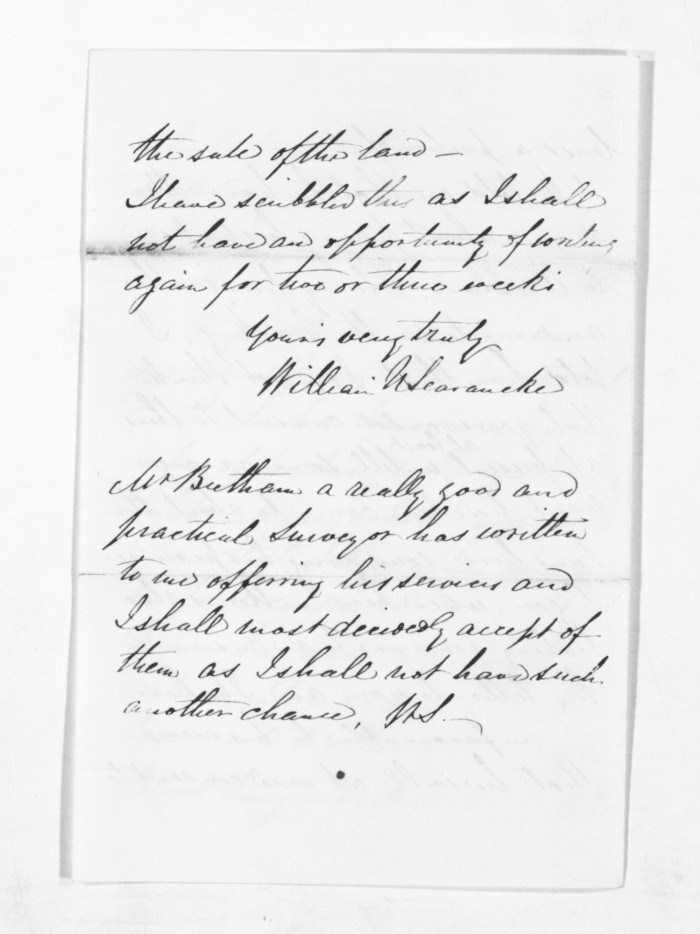 the sale of the land —
I have scribbled this as I shall
not have an opportunity of writing
again for two or three weeks
Yours very truly
William N Searancke
Mr Beetham a really good and
practical Surveyor has written
to me offerring his services and
I shall most decidedly accept of
them as I shall not have such
another chance, WS.—